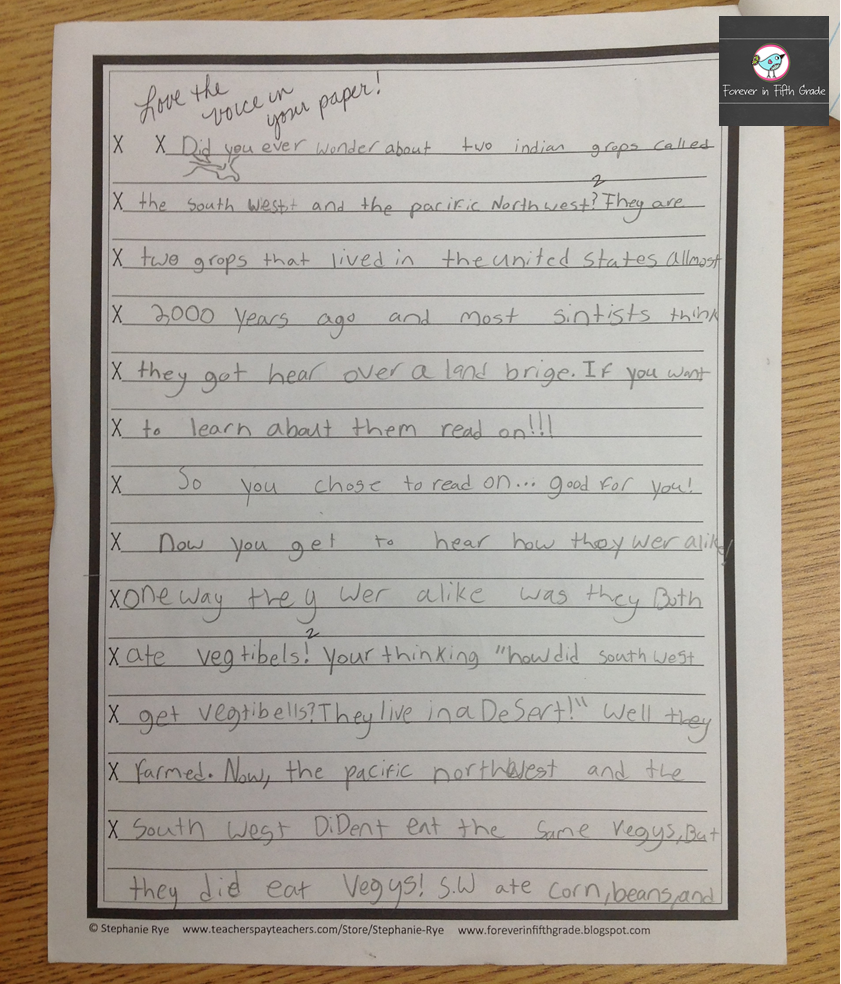 Forever in Fifth Grade
Love the
voice in
your paper!
X X Did you ever wonder about two indian grops called
2
X the south west and the pacific Northwest? They are
X two grops that lived in the united states allmost
X 2,000 years ago and most sintists think
X they got hear over a land brige. If you want
X to learn about them read on!!!
X So you chose to read on... good for you!
X Now you get to hear how they wer alike!
X one way they wer alike was they Both
2
X ate vegtibels! Your thinking "how did south west
X get vegtibells? They live in a DeSert!" Well they
X farmed. Now, the pacific northWest and the
X South west DiDent eat the same vegys, But
they did eat Vegys! S.W ate corn, beans, and
© Stephanie Rye www.teacherspayteachers.com/Store/Stephanie-Rye www.foreverinfifthgrade.blogspot.com